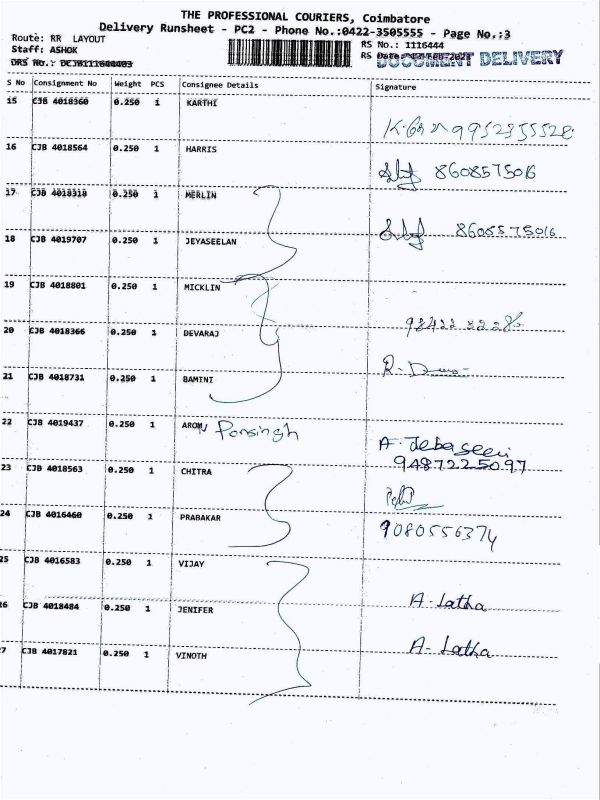 THE PROFESSIONAL COURIERS, Coimbatore
Delivery Runsheet - PC2 - Phone No.:0422-3505555 - Page No.:3
Route: RR LAYOUT
RS No.: 1116444
Staff: ASHOK
RS Date:
DOCUMENT DELIVERY
DRS No.:
S No Consignment No Weight PCS Consignee Details Signature
15 CJB 4018360 0.250 1 KARTHI
9952355528
16 CJB 4018564 0.250 1 HARRIS
8608575016
17 CJB 4018318 0.250 1 MERLIN
8608575016
18 CJB 4019707 0.250 1 JEYASEELAN
19 CJB 4018801 0.250 1 MICKLIN
20 CJB 4018366 0.250 1 DEVARAJ
21 CJB 4018731 0.250 1 BAMINI
22 CJB 4019437 0.250 1 Ponsingh
A. Jebaseeli
9487225097
23 CJB 4018563 0.250 1 CHITRA
24 CJB 4016460 0.250 1 PRABAKAR
9080556374
25 CJB 4016583 0.250 1 VIJAY
A. Latha
26 CJB 4018484 0.250 1 JENIFER
A. Latha
27 CJB 4017821 0.250 1 VINOTH